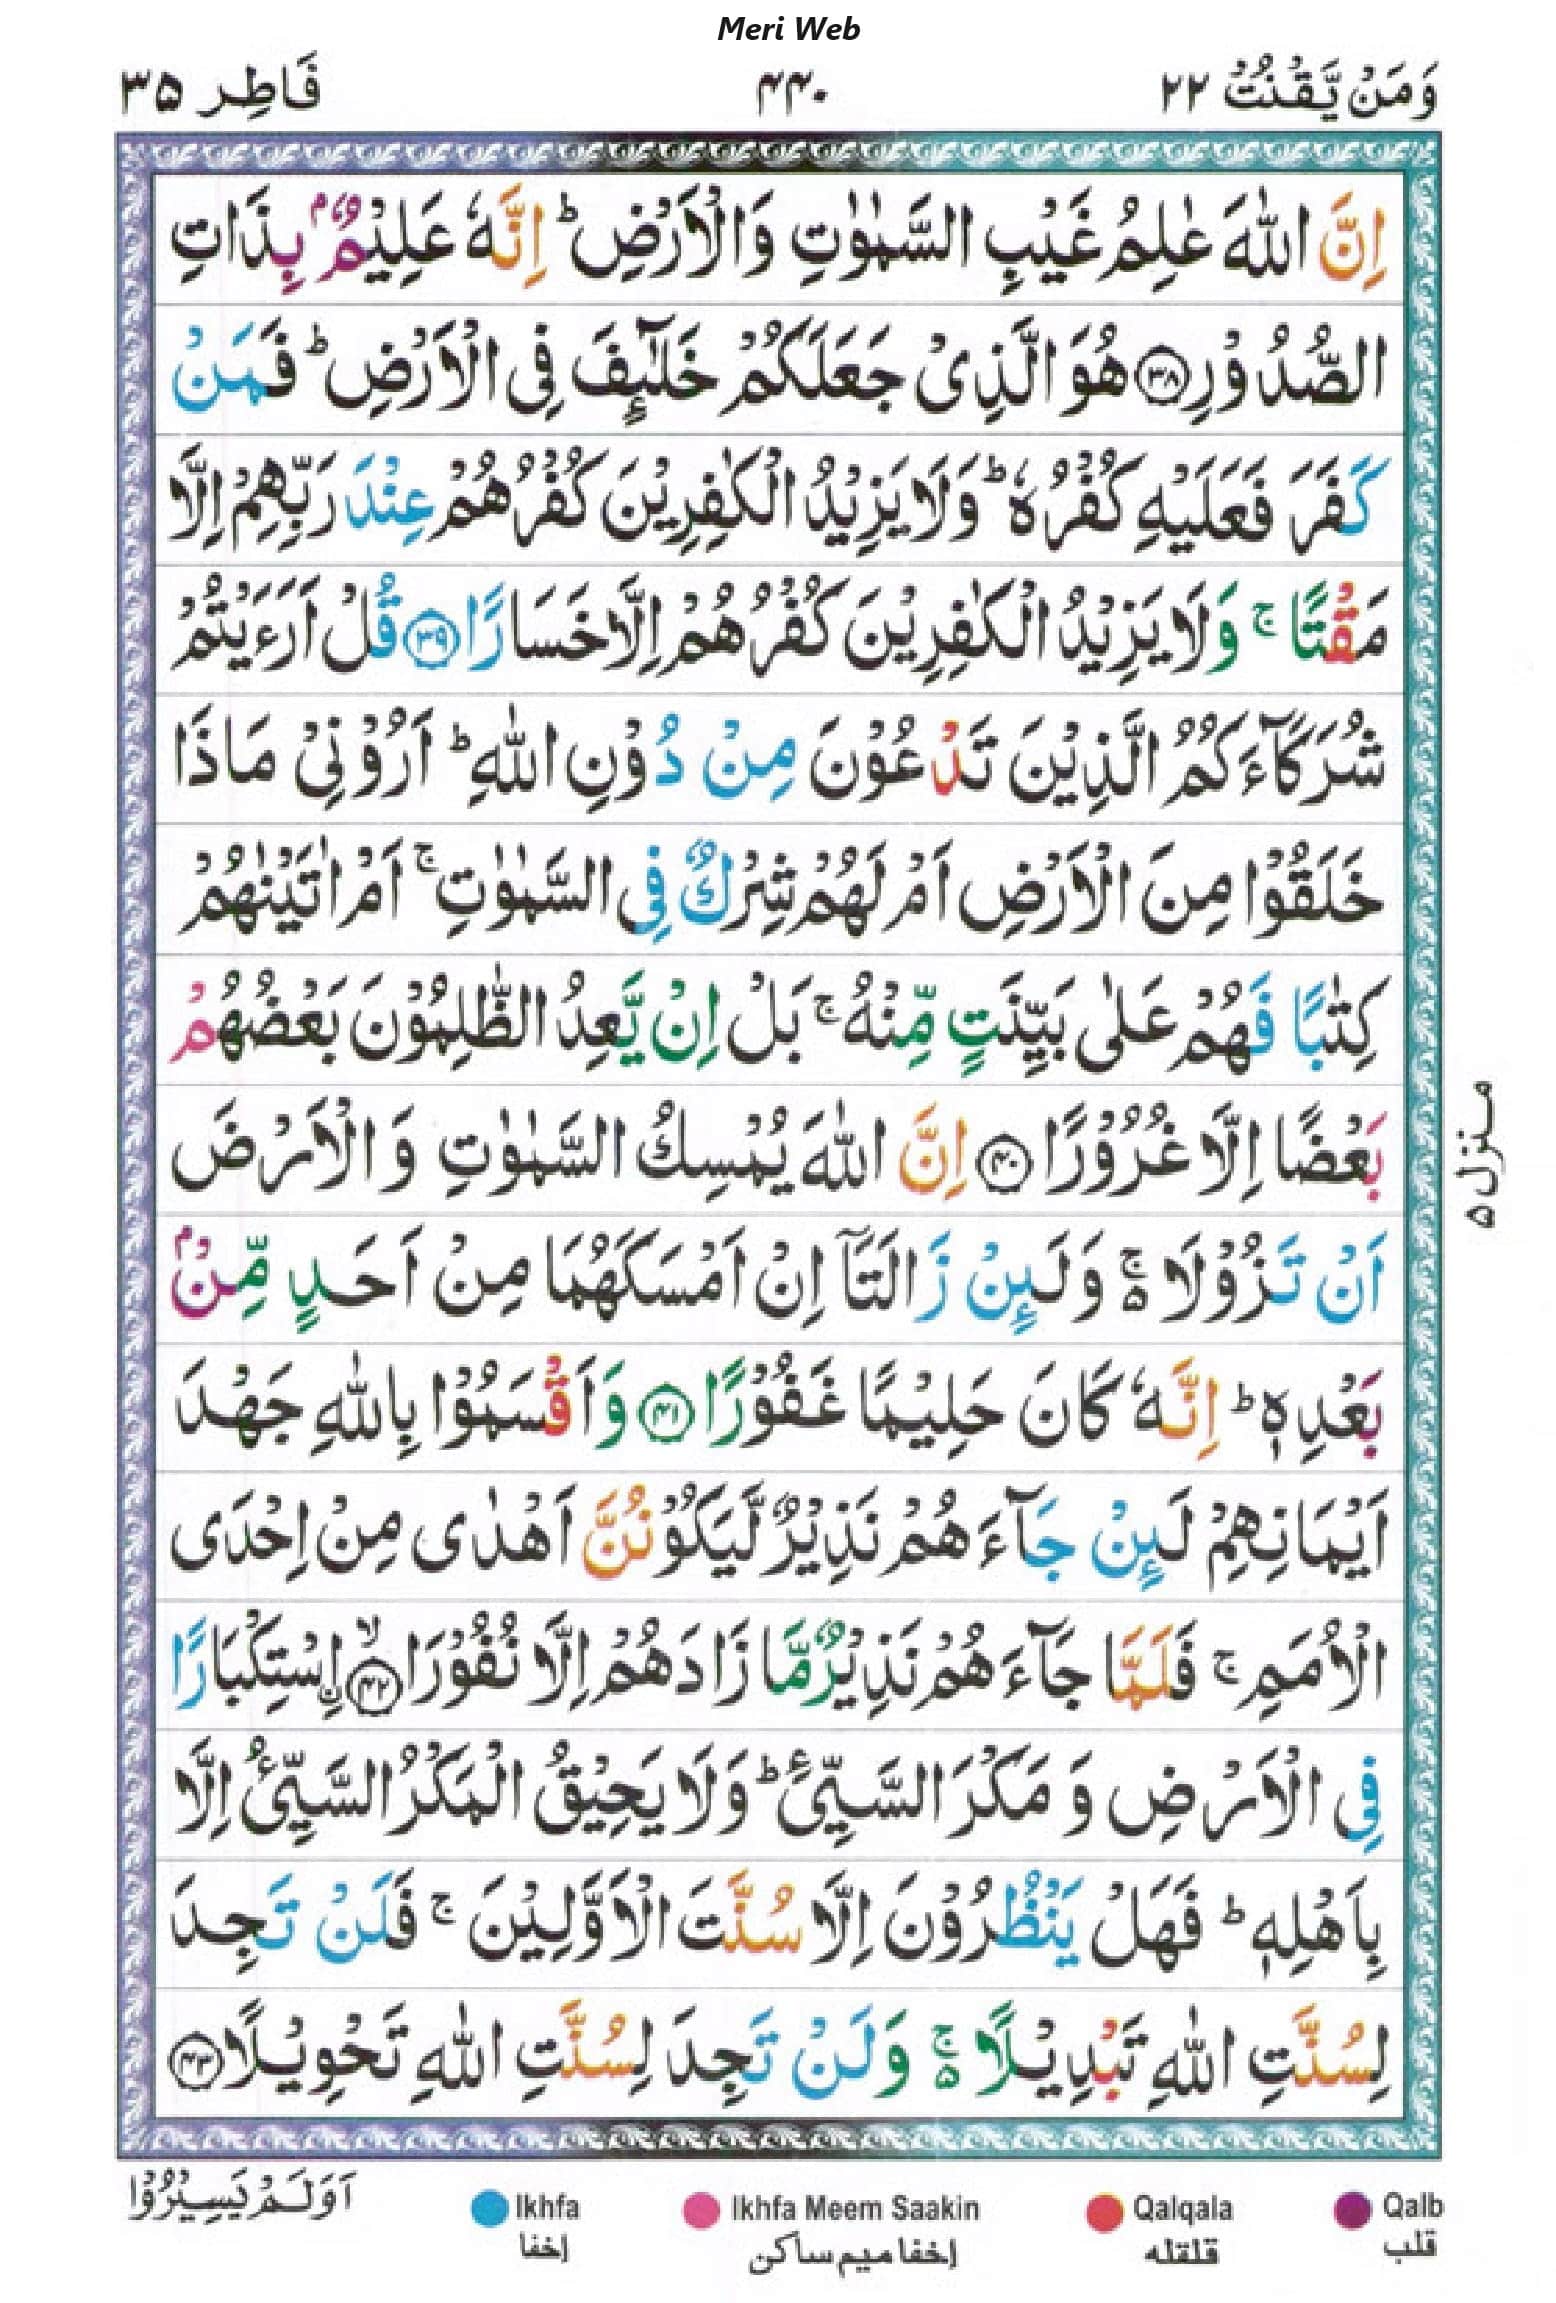 Meri Web
وَمَنْ يَّقْنُتْ ٢٢
٤٤٠
فَاطِر ٣٥
اِنَّ اللّٰهَ عٰلِمُ غَيْبِ السَّمٰوٰتِ وَالْاَرْضِ ؕ اِنَّهٗ عَلِيْمٌۢ بِذَاتِ
الصُّدُوْرِ ﴿۳۸﴾ هُوَ الَّذِىْ جَعَلَكُمْ خَلٰٓئِفَ فِى الْاَرْضِ ؕ فَمَنْ
كَفَرَ فَعَلَيْهِ كُفْرُهٗ ؕ وَلَا يَزِيْدُ الْكٰفِرِيْنَ كُفْرُهُمْ عِنْدَ رَبِّهِمْ اِلَّا
مَقْتًا ۚ وَلَا يَزِيْدُ الْكٰفِرِيْنَ كُفْرُهُمْ اِلَّا خَسَارًا ﴿۳۹﴾ قُلْ اَرَءَيْتُمْ
شُرَكَآءَكُمُ الَّذِيْنَ تَدْعُوْنَ مِنْ دُوْنِ اللّٰهِ ؕ اَرُوْنِىْ مَاذَا
خَلَقُوْا مِنَ الْاَرْضِ اَمْ لَهُمْ شِرْكٌ فِى السَّمٰوٰتِ ۚ اَمْ اٰتَيْنٰهُمْ
كِتٰبًا فَهُمْ عَلٰى بَيِّنَتٍ مِّنْهُ ۚ بَلْ اِنْ يَّعِدُ الظّٰلِمُوْنَ بَعْضُهُمْ
بَعْضًا اِلَّا غُرُوْرًا ﴿۴۰﴾ اِنَّ اللّٰهَ يُمْسِكُ السَّمٰوٰتِ وَالْاَرْضَ
اَنْ تَزُوْلَا ۚ۵ وَلَئِنْ زَالَتَاۤ اِنْ اَمْسَكَهُمَا مِنْ اَحَدٍ مِّنْۢ
بَعْدِهٖ ؕ اِنَّهٗ كَانَ حَلِيْمًا غَفُوْرًا ﴿۴۱﴾ وَاَقْسَمُوْا بِاللّٰهِ جَهْدَ
اَيْمَانِهِمْ لَئِنْ جَآءَهُمْ نَذِيْرٌ لَّيَكُوْنُنَّ اَهْدٰى مِنْ اِحْدَى
الْاُمَمِ ۚ فَلَمَّا جَآءَهُمْ نَذِيْرٌ مَّا زَادَهُمْ اِلَّا نُفُوْرَا ﴿۴۲﴾ۙ ۨاسْتِكْبَارًا
فِى الْاَرْضِ وَ مَكْرَ السَّيِّئِ ؕ وَلَا يَحِيْقُ الْمَكْرُ السَّيِّئُ اِلَّا
بِاَهْلِهٖ ؕ فَهَلْ يَنْظُرُوْنَ اِلَّا سُنَّتَ الْاَوَّلِيْنَ ۚ فَلَنْ تَجِدَ
لِسُنَّتِ اللّٰهِ تَبْدِيْلًا ۚ۵ وَلَنْ تَجِدَ لِسُنَّتِ اللّٰهِ تَحْوِيْلًا ﴿۴۳﴾
منزل ۵
اَوَلَمْ يَسِيْرُوْا
Ikhfa
إخفا
Ikhfa Meem Saakin
إخفا ميم ساكن
Qalqala
قلقله
Qalb
قلب